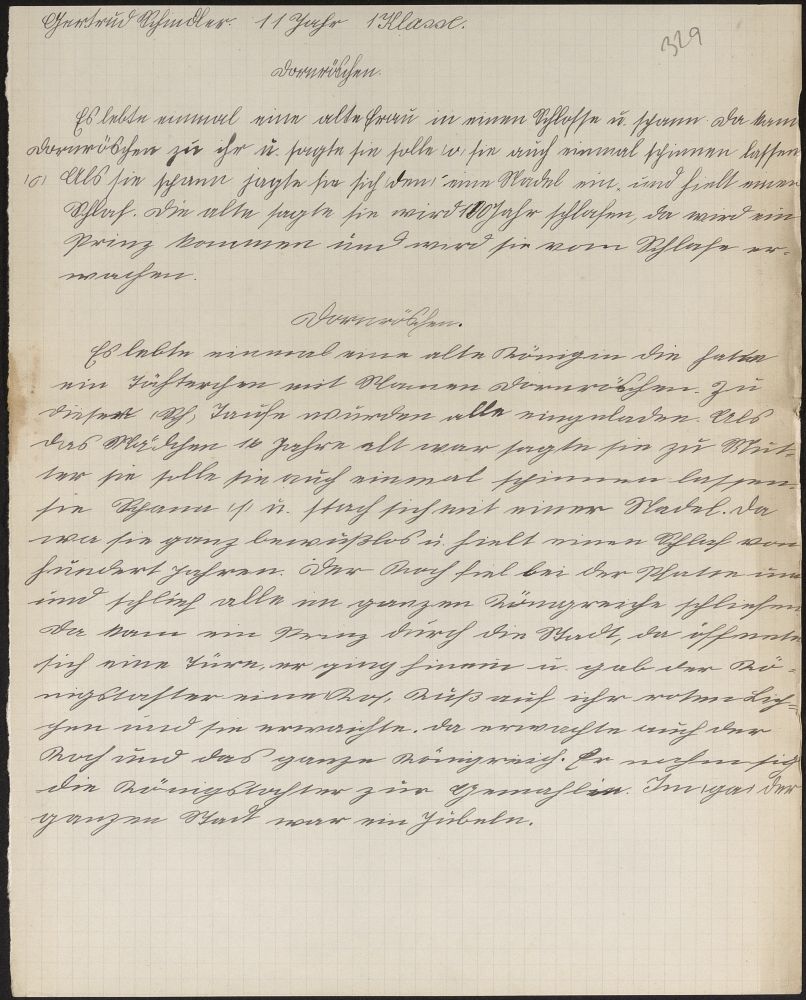 Gertrud Schindler. 11 Jahr 1 Klasse.
329
Dornröschen.
Es lebte einmal eine alte Frau in einen Schlosse u. spann. Da kam
Dornröschen zu ihr u. sagte sie solle (o) sie auch einmal spinnen lassen
(o) Als sie spann sagte sie sich (den) eine Nadel ein, und hielt einen
Schlaf. Die alte sagte sie wird 100 Jahr schlafen, da wird ein
Prinz kommen und wird sie vom Schlafe er-
wachen.
Dornröschen.
Es lebte einmal eine alte Königin die hatte
ein Töchterchen mit Namen Dornröschen. Zu
dieser (Sch) Taufe wurden alle eingeladen. Als
das Mädchen 10 Jahre alt war sagte sie zu Mut-
ter sie solle sie auch einmal spinnen lassen.
sie Spann (s) u. stach sich mit einer Nadel. Da
wa sie ganz bewußlos u. hielt einen Schlaf von
hundert Jahren. Der Koch fiel bei der Pfanne um
und schlief alle im ganzen Königreiche schliefen
Da kam ein Prinz durch die Stadt, da öffnete
sich eine Türe, er ging hinein u. gab der Kö-
nigstochter eine Kuß auf ihr roten
und sie erwachte. Da erwachte auch der
Koch und das ganze Königreich. Er nahm sich
die Königstochter zur Gemahlin. Im (ga) der
ganzen Stadt war ein Jubeln.